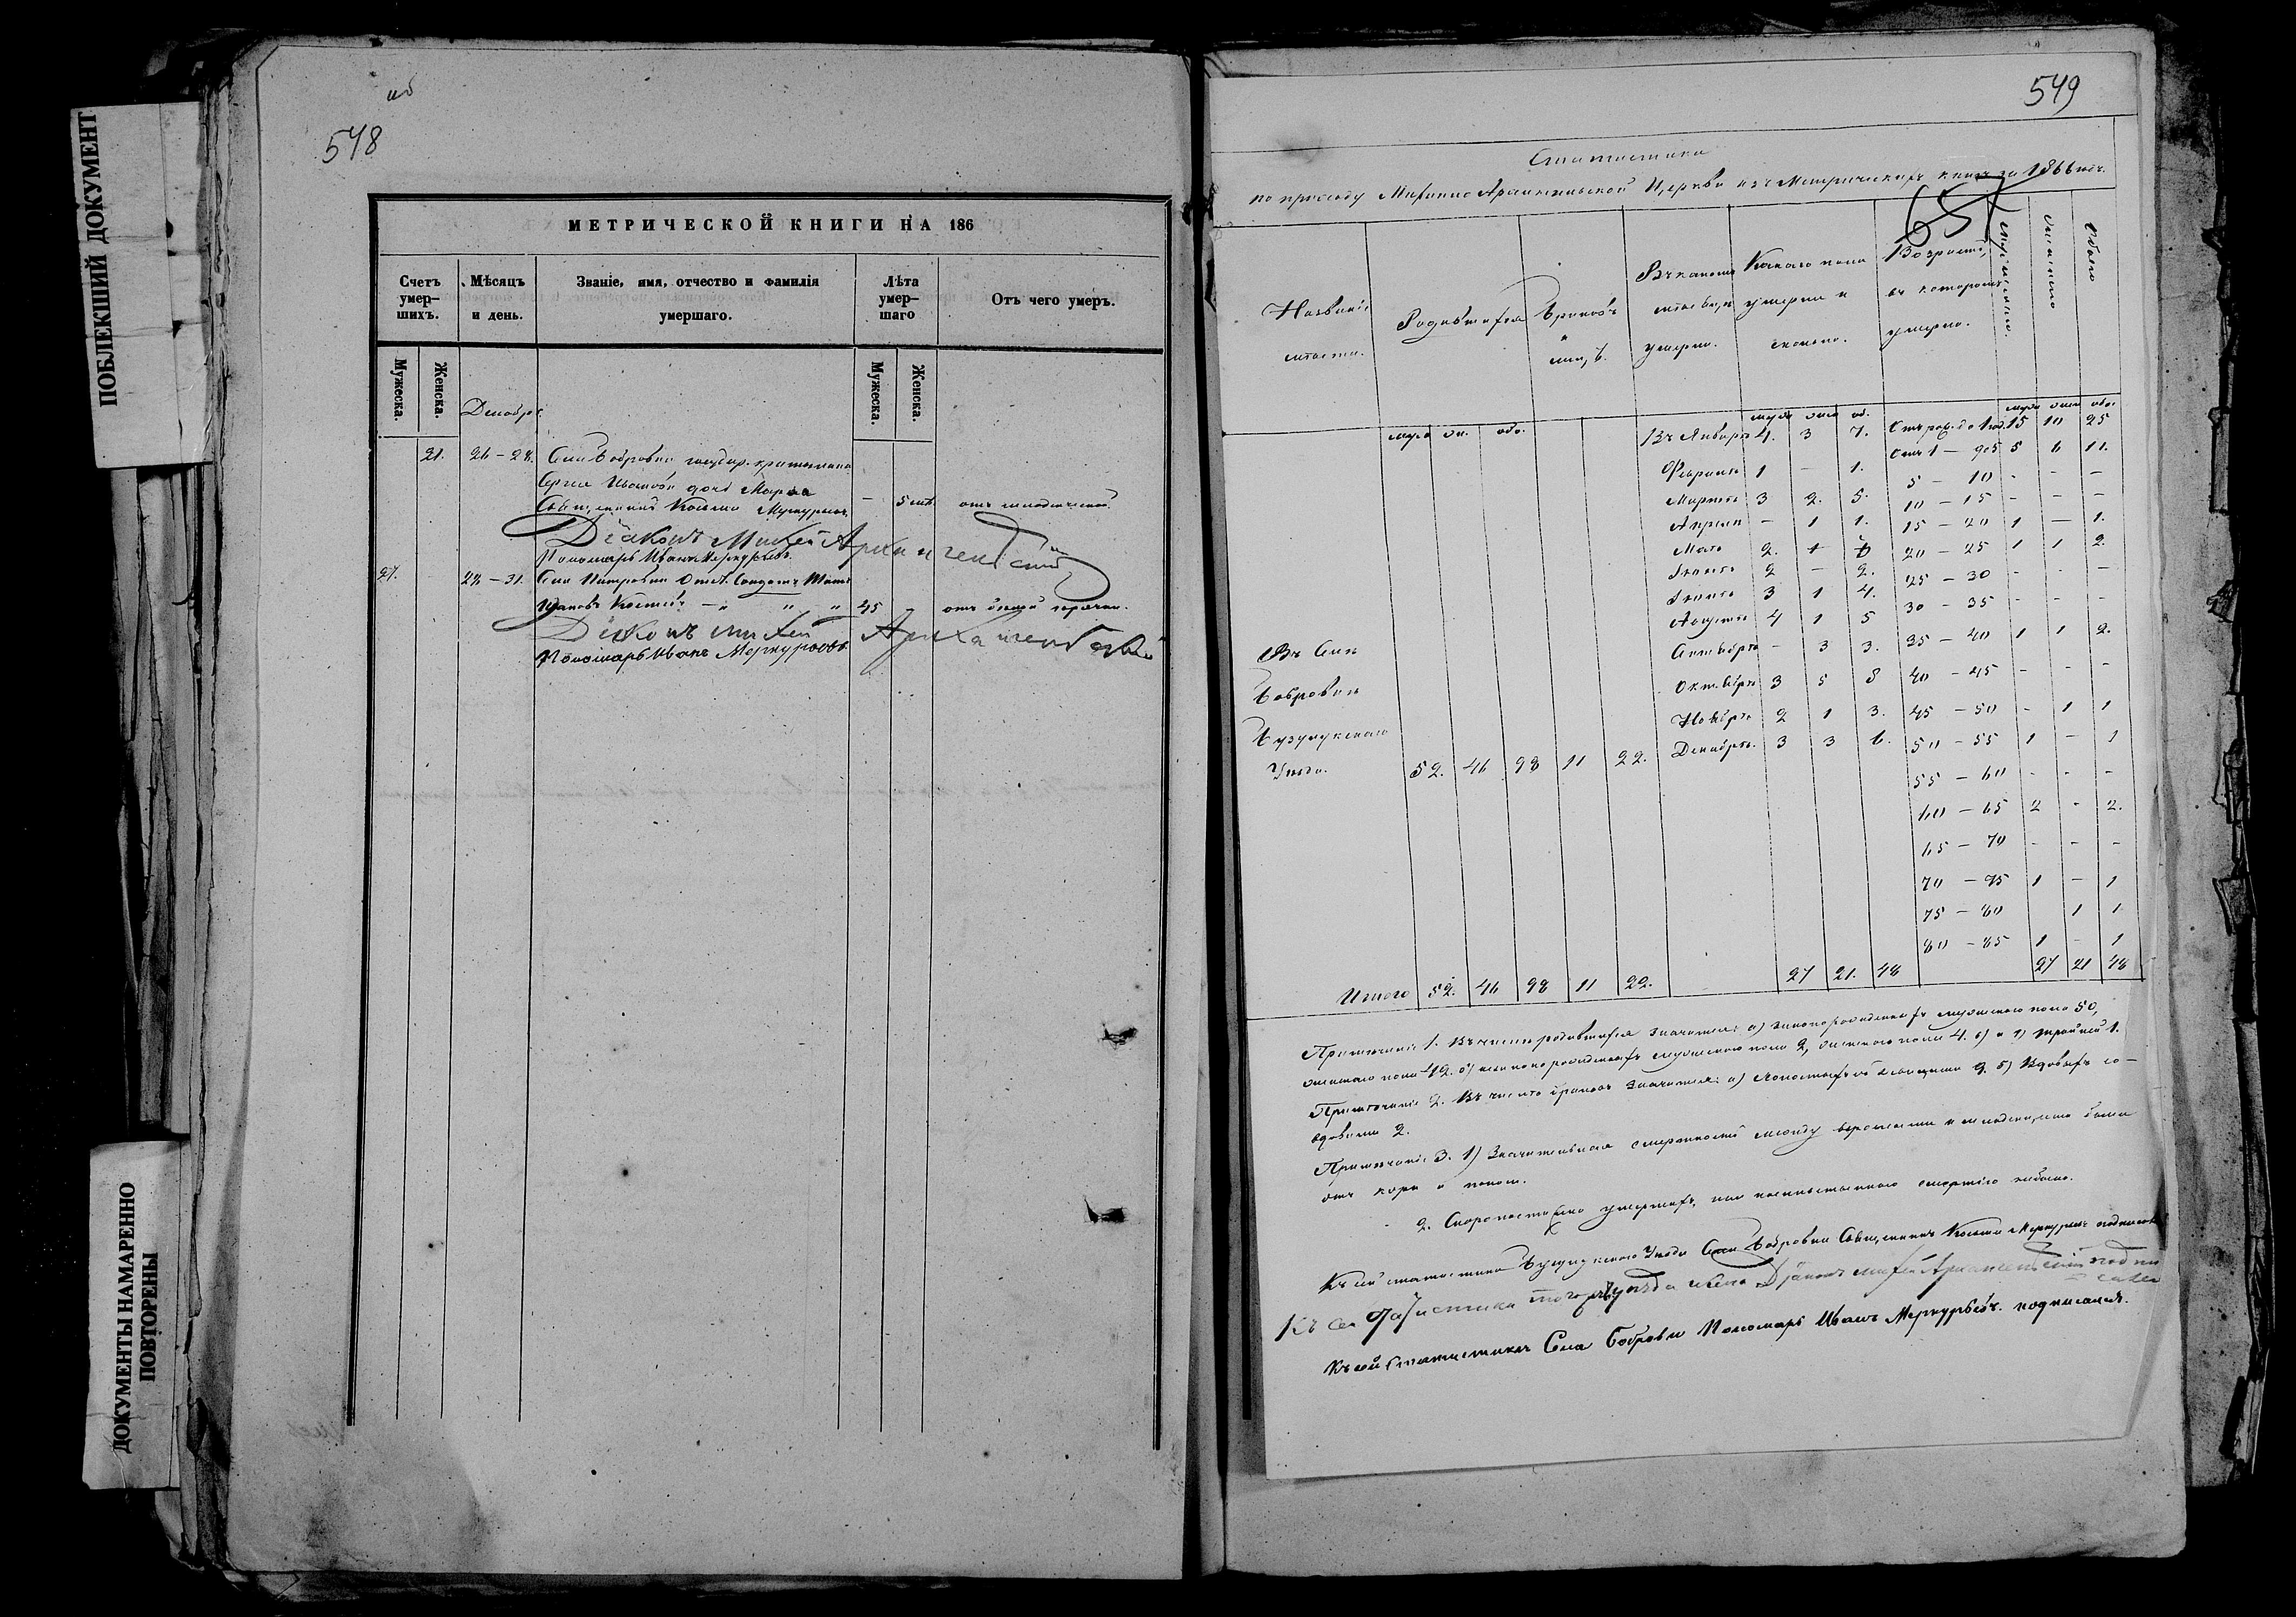 ПОБЛЕКШИЙ ДОКУМЕНТ
ДОКУМЕНТЫ НАМАРЕННО
ПОВТОРЕНЫ
об
548
МЕТРИЧЕСКОЙ КНИГИ НА 186
Счетъ умер-шихъ.
Мѣсяцъ и день.
Званіе, имя, отчество и фамилія умершаго.
Лѣта умер-шаго
Отъ чего умеръ.
Мужеска.
Женска.
Мужеска.
Женска.
Декабрь
21. 26 – 28. Села Бобровки государ. крестьянина
Сергея Иванова дочь Марѳа – 5 лѣт.
Священникъ Косьма Меркурьевъ
Діаконъ Михей Архангельскій
Пономарь Иванъ Меркурьевъ
27. 28 – 31. Села Петровки Солдатъ
45 отъ белой горячки.
Діаконъ Михей Архангельскій
Пономарь Иванъ Меркурьевъ
549
Статистика
по приходу Михаило Архангельской Церкви изъ Метрическихъ книгъ за 1866 годъ.
657
Названіе мѣста.
Родившихся
Браковъ
Въ какомъ мѣсяцѣ умерло.
Какого пола умерли и сколько.
Возрастъ, въ которомъ умерло.
Мужескаго.
Женскаго
Обоего
муж жен. обо. муж жен об. муж жен обо.
Въ Январѣ 4. 3 7. Отъ рож. до 1 год. 15 10 25
Февралѣ 1 – 1. Отъ 1 – до 5 5 6 11.
Мартѣ 3 2. 5. 5 – 10 - - –
Апрѣлѣ – 1 1. 10 – 15 - – –
Маѣ 2. 15 – 20 1 – 1.
Іюнѣ 2 – 2. 20 – 25 1 1 2.
Іюлѣ 3 1 4. 25 – 30 - - –
Августѣ 4 1 5 30 – 35 - - -
Сентябрѣ – 3 3. 35 – 40 1 1 2.
Октябрѣ 3 5 8 40 – 45 - – -
Ноябрѣ 2 1 3. 45 – 50 - 1 1
Декабрѣ. 3 3 6. 50 – 55 1 – 1
Въ Селѣ
Бобровкѣ
Бузулукскаго
Уѣзда. 52. 46 98 11 22.
55 – 60 - - –
60 – 65 2 - 2.
65 – 70 - - –
70 – 75 1 – 1
75 – 80 1 1
80 – 85 1 - 1
Итого 52. 46 98 11 22. 27 21. 48 27 21 48
Примѣчаніе 1. Въ числѣ родившихся значится: а) законорожденныхъ мужескаго пола 50,
женскаго пола 42. б) незаконорожденныхъ мужескаго пола 2, женскаго пола 4.
Примѣчаніе 2. Въ числѣ браковъ значится: а) Холостыхъ съ девицами 9. б) Вдовыхъ со
вдовами 2.
Примѣчаніе 3. 1) Значительная смертность между взрослыми и младенцами была
отъ кори и поноса.
2. Скоропостижно умершихъ, или насильственною смертію небыло.
Къ сей статистикѣ Бузулукскаго Уѣзда Села Бобровки Священникъ Косьма Меркурьевъ подписался
Къ сей Статистики того уѣзда и села Діаконъ Михей Архангельскій подпи
сался
Къ сей Статистикѣ Села Бобровки Пономарь Иванъ Меркурьевъ подписался.